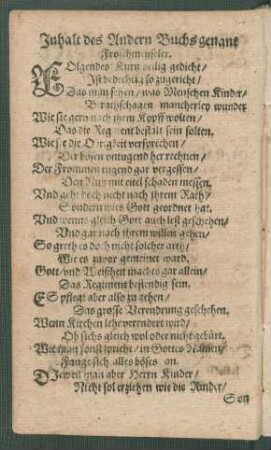 Inhalt des Andern Buchs genant
Froschmeuseler.
FOlgendes Kurtzweilig gedicht/
Ist bedechtig so zugericht/
Das man sehen/ was Menschen Kinder/
Beratschlagen mancherley wunder
Wie sie gern nach jhrem Kopff wolten/
Das die Regiment bestalt sein solten.
Wie sie die Obrigkeit versprechen/
Der bösen untugend herrechnen/
Der Frommen tugend gar vergessen/
Den Nutz mit eitel schaden messen.
Vnd geht doch nicht nach jhrem Rath/
Sondern wies Gott geordnet hat.
Vnd wenns gleich Gott auch liest geschehen/
Vnd gar nach jhrem willen gehen/
So greth es doch nicht solcher arth/
Wie es zuvor gemeinet ward.
Gott/ vnd Weißheit machts gar allein/
Das Regiment bestendig sein.
ES pflegt aber also zu gehen/
Das grosse Verendrung geschehen.
Wenn Kirchen lehr verendert wird/
Ob sichs gleich wol oder nicht gebürt.
Wie man sonst spricht/ in Gottes Namen/
Fangt sich alles böses an.
DIeweil man aber Herrn Kinder/
Nicht sol erziehen wie die Rinder/
Son